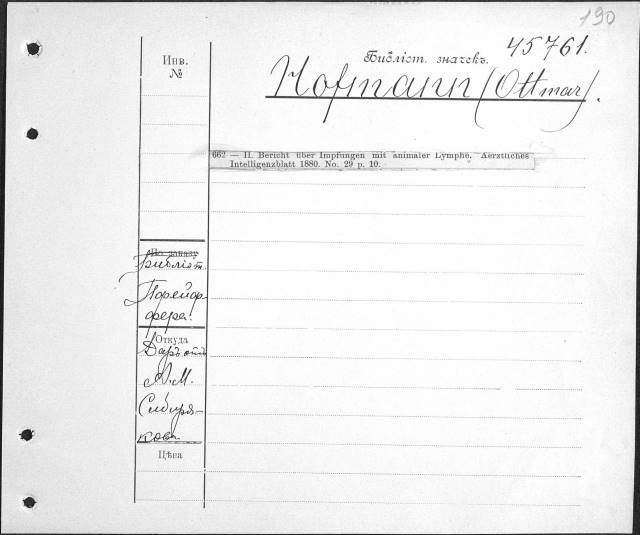 190
45761.
Инв.
№
Библіот. значекъ.
Hofmann (Ottmar).
662 — II. Bericht über Impfungen mit animaler Lymphe. Aerztliches
Intelligenzblatt 1880. No. 29 p. 10.
По заказу
Библіот.
Пфейф-
фера.
Откуда
Даръ отъ
А. М.
Сибиря-
кова.
Цѣна